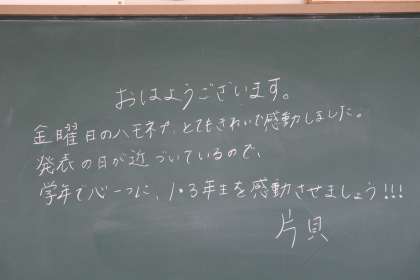 おはようございます。
金曜日のハモネプ、とてもきれいで感動しました。
発表の日が近づいているので、
学年で心一つに、1・3年生を感動させましょう!!!
片貝